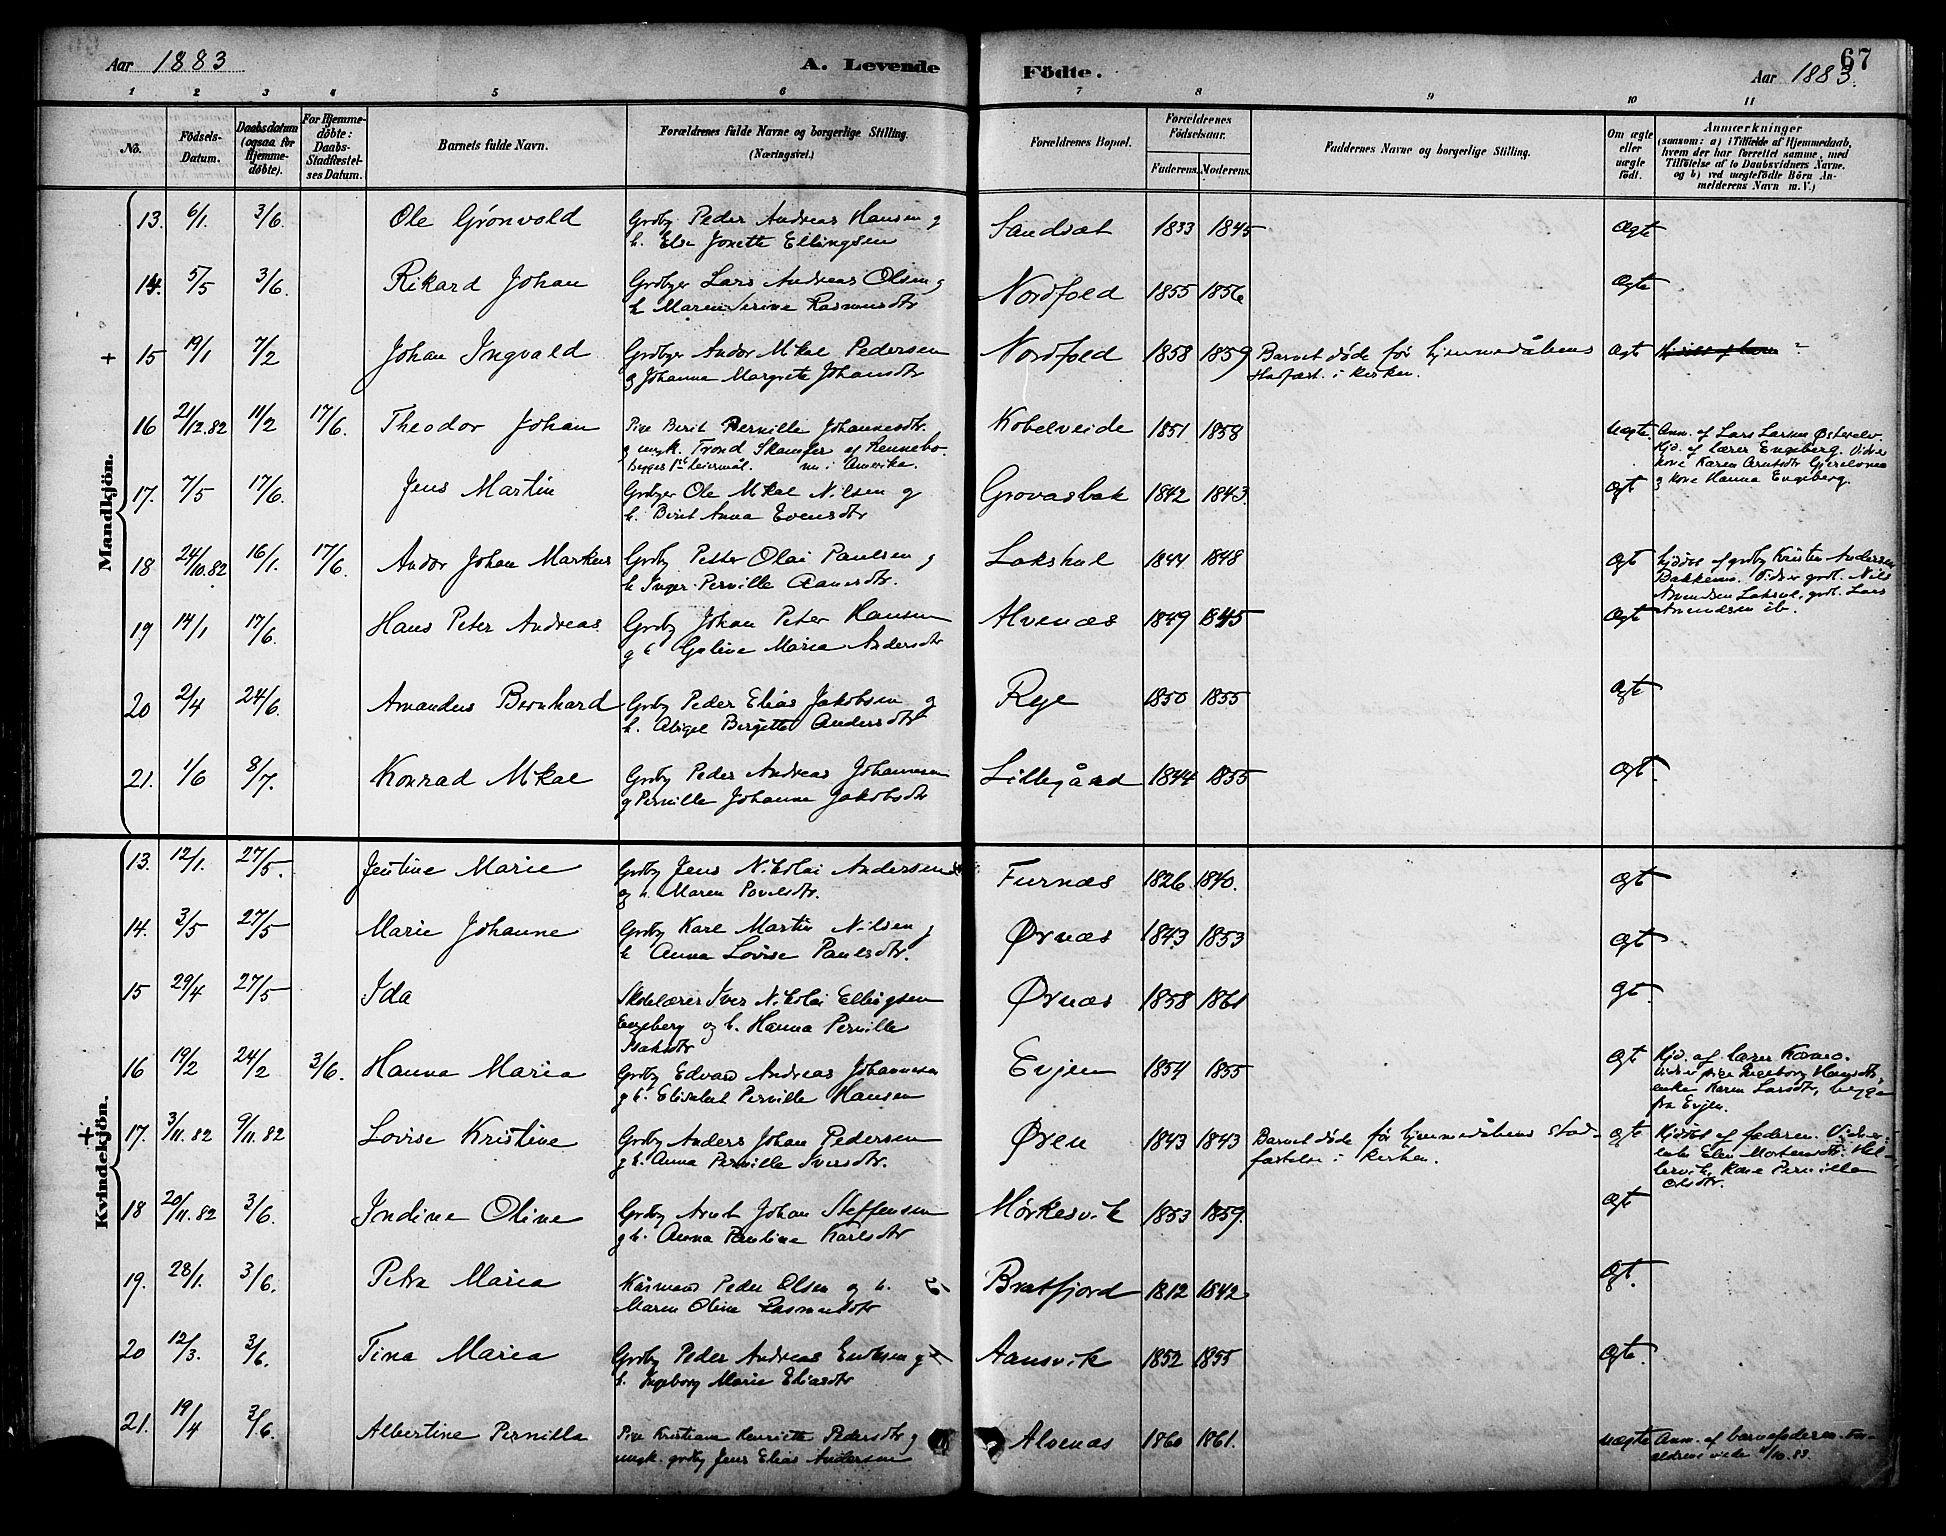 Aar 1883
A. Levende Födte.
Aar 1883.
67
1 2 3 4 5 6 7 8 9 10 11
No.
Födsels-Datum.
Daabsdatum (ogsaa for Hjemmedöbte).
For Hjemmedöbte: Daabs-Stadfæstelses Datum.
Barnets fulde Navn.
Forældrenes fulde Navne og borgerlige Stilling. (Næringsvei.)
Forældrenes Bopæl.
Forældrenes Födselsaar.
Faderens. Moderens.
Faddernes Navne og borgerlige Stilling.
Om ægte eller uægte födt.
Anmærkninger
(saasom: a) i Tilfælde af Hjemmedaab, hvem der har forrettet samme, med Tilföielse af to Daabsvidners Navne, og b) ved uegtefödte Börn Anmelderens Navn m. V.)
Mandkjön.
13. 6/1. 3/6. Ole Grønvold Grdby Peder Andreas Hansen og Sandsæt 1833 1845 Ægte
h. Else Jonette Ellingsen
14. 5/5 3/6. Rikard Johan Grdbyer Lars Andreas Olsen og Nordfold 1855 1856 Ægte
h. Maren Serine Rasmusdtr
+ 15 19/1 7/2 Johan Ingvald Grdbyer Andor Mkal Pedersen Nordfold 1858 1859 Barnet døde før hjemmedåbens Ægte
og Johanna Margrete Johansdtr stadfæst. i kirken.
16 21/12.82 11/2 17/6. Theodor Johan Pige Berit Pernille Johannesdtr. Kobelveide 1851 1858 Uægte. Ann. af Lars Larsen Østerelv.
og ungk. Trond Skamfer af Rennebo. Hjd. af lærer Engeberg. Vidner
Begges 1ste leiermål. nu i Amerika. kone Karen Arntsdtr
17. 7/5 17/6. Jens Martin Grdbyer Ole Mkal Nilsen og Grovasbak 1842 1843. Ægt og kone Hanna Engeberg.
h. Berit Anna Evensdtr
18 24/10.82 16/1. 17/6. Andor Johan Markus Grdby Petter Olai Paulsen og Lakshul 1844 1848 Ægt hjdøbt af grdby Kristen Andersen
h. Inger Pernille Bakkemo. Vidner grdb. Nils
Arentsen Laksul, grdb. Lars
19 14/1 17/6. Hans Peter Andreas. Grdby Johan Peter Hansen Alvenæs 1849 1845 Ægte Arentsen ib.
og h. Galine Maria Andersdtr
20 2/4 24/6. Amandus Bernhard Grdby Peder Elias Jakobsen og Røge 1850 1855 Ægt
h. Abigel Birgitte Andersdtr
21. 1/6 8/7. Konrad Mkal Grdby Peder Andreas Johannesen Lillegård 1844 1855 Ægt.
og Pernille Johanne Jakobsdtr
Kvindekjön.
13. 12/1. 27/5. Jentine Marie Grdby Jens Nikolai Andersen Furnæs 1826. 1840. Ægt
og h. Maren Povelsdtr.
14. 3/5 27/5 Marie Johanne Grdby Karl Martin Nilsen og Ørnæs 1843 1853 Ægt
h. Anna Lovise Paulsdtr.
15 29/4 27/5 Ida Skolelærer Iver Nikolai Ellingsen Ørnæs 1858 1861 Ægt.
Engeberg og h. Hanna Pernille
Isaksdtr
16 19/2 24/2 3/6. Hanna Maria Grdby Edvard Andreas Johannesen Evjen 1854 1855 Ægt Hjd. af lærer
og h. Elisabet Pernille Hansen Vidner pige Ingeborg Hansdtr,
enke Karen Larsdtr, begge
fra Evjen.
+ 17. 3/11.82 9/11.82 Lovise Kristine Grdby Anders Johan Pedersen Øren 1843 1843 Barnet døde før hjemmedåbens stad- Ægte Hjdøbt af faderen. Vidner:
og h. Anna Pernille Iversdtr. fæstelse i kirken. enke Elen Mortensdtr. Hel-
lervik, kone Pernilla
Olsdtr.
18 20/11.82 3/6. Indine Oline Grdby Arnt Johan Steffensen Mørkesvik 1853 1859. Ægt
og h. Anna Pauline Karlsdtr
19. 28/1. 3/6. Petra Maria Kårmand Peder Olsen og h. Bratfjord 1812 1842 Ægt.
Maren Oline Rasmusdtr
20 12/3. 3/6. Tina Maria Grdby Peder Andreas Eriksen og Aansvik 1852 1855 Ægte.
h. Ingeborg Marie Eliasdtr
21. 19/4 3/6. Albertine Pernilla Pige Kristiane Henriette Pedersdtr og Alvenæs 1860 1861. Uægte Ann. af barnefaderen. For-
ungk. grdby Jens Elias Andersen ældrene viede 11/10.83.